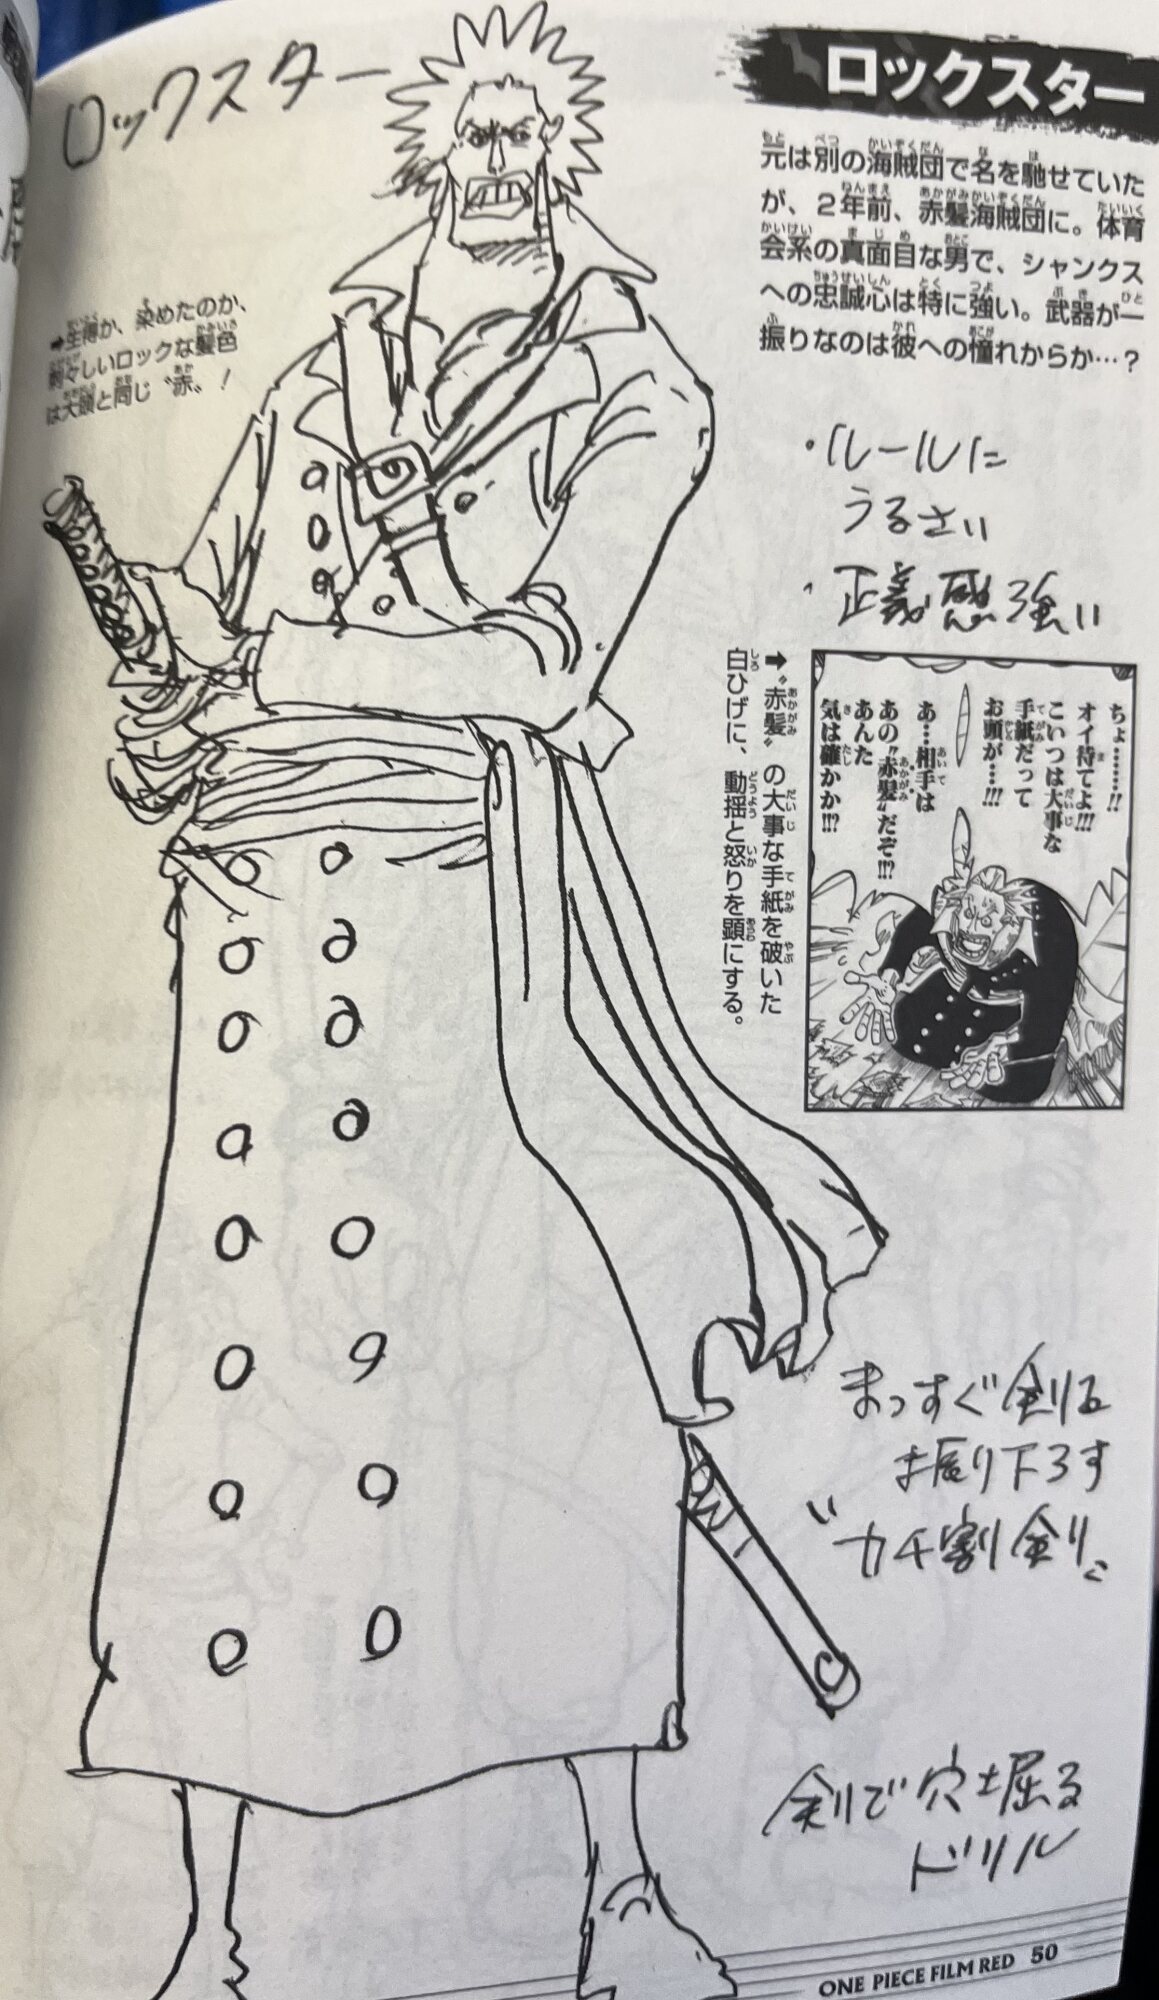 ロックスター
ロックスター
元は別の海賊団で名を馳せていた
が、2年前、赤髪海賊団に。体育
会系の真面目な男で、シャンクス
への忠誠心は特に強い。武器が一
振りなのは彼への憧れからか…?
➡生得か、染めたのか、
刺々しいロックな髪色
は大頭と同じ〝赤〟!
・ルールに
うるさい
・正義感強い
ちょ………!!
オイ待てよ!!!
こいつは大事な
手紙だって
お頭が……!!!
あ…相手は
あの〝赤髪〟だぞ!!?
あんた
気は確かか!!?
➡〝赤髪〟の大事な手紙を破いた
白ひげに、動揺と怒りを顕にする。
まっすぐ剣を
振り下ろす
"カチ割剣"
剣で穴を掘る
ドリル
ONE PIECE FILM RED 50